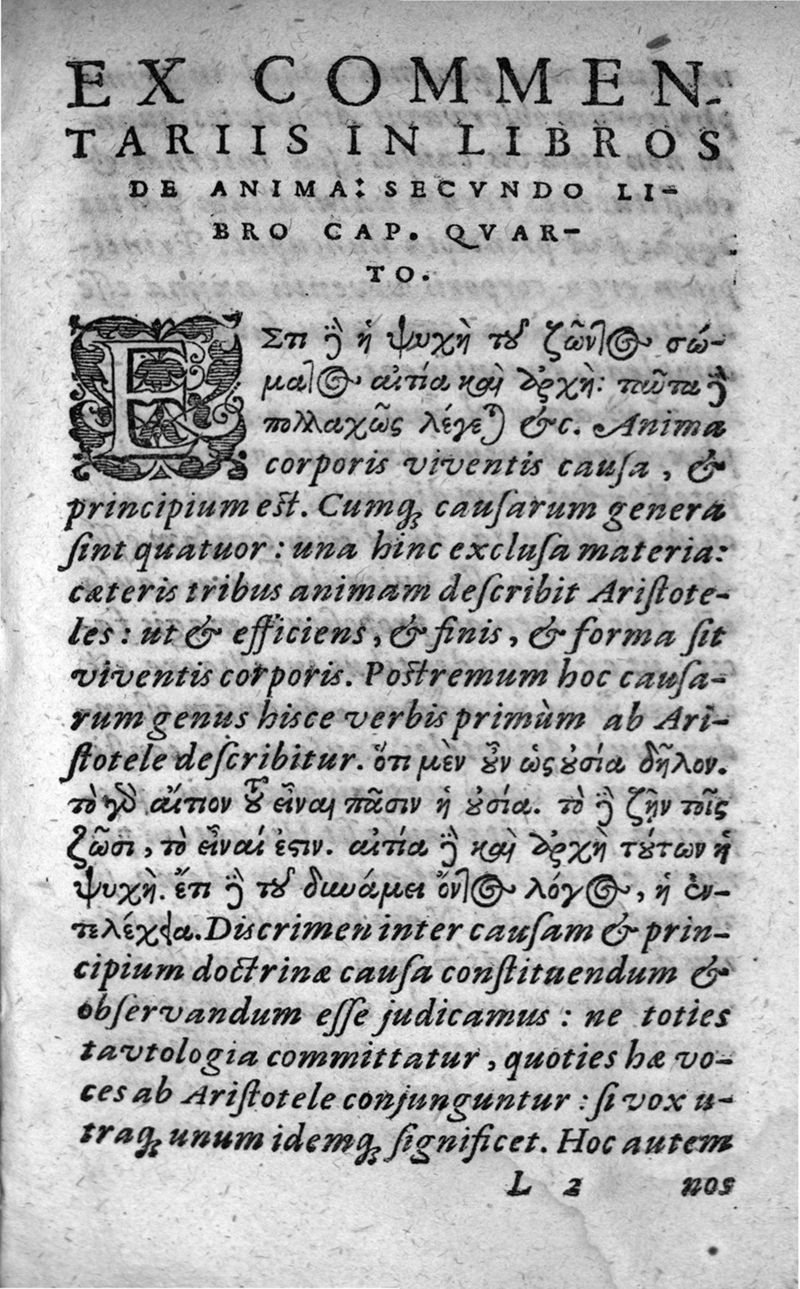 EX COMMEN-
TARIIS IN LIBROS
DE ANIMA: SECVNDO LI-
BRO CAP. QVAR-
TO.
ΕΣτι δὲ ἡ ψυχὴ τοῦ ζῶντος σώ-
ματος αἰτία καὶ ἀρχὴ: ταῦτα δὲ
πολλαχῶς λέγεται &c. Anima
corporis viventis causa, &
principium est. Cumq; causarum genera
sint quatuor: una hinc exclusa materia:
cæteris tribus animam describit Aristote-
les: ut & efficiens, & finis, & forma sit
viventis corporis. Postremum hoc causa-
rum genus hisce verbis primùm ab Ari-
stotele describitur. ὅτι μὲν οὖν ὡς οὐσία δῆλον.
τὸ γὰρ αἴτιον τοῦ εἶναι πᾶσιν ἡ οὐσία. τὸ δὲ ζῆν τοῖς
ζῶσι, τὸ εἶναί ἐστιν. αἰτία δὲ καὶ ἀρχὴ τούτων ἡ
ψυχὴ. ἔτι δὲ τοῦ δυνάμει ὄντος λόγος, ἡ ἐν-
τελέχεια. Discrimen inter causam & prin-
cipium doctrinæ causa constituendum &
observandum esse judicamus: ne toties
tavtologia committatur, quoties hæ vo-
ces ab Aristotele conjunguntur: si vox u-
traq; unum idemq; significet. Hoc autem
L 2 nos